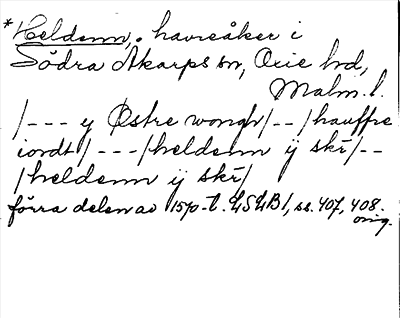 *Heldenn, havreåker i
Södra Åkarps sn, Oxie hd,
Malm. l.
/--- y Østre wongh/--/hauffre
iordt/---/heldenn ÿ skr̄/--
/heldenn ÿ skr̄/
förra delen av 1570-t. LSLB1, ss. 407, 408.
orig.